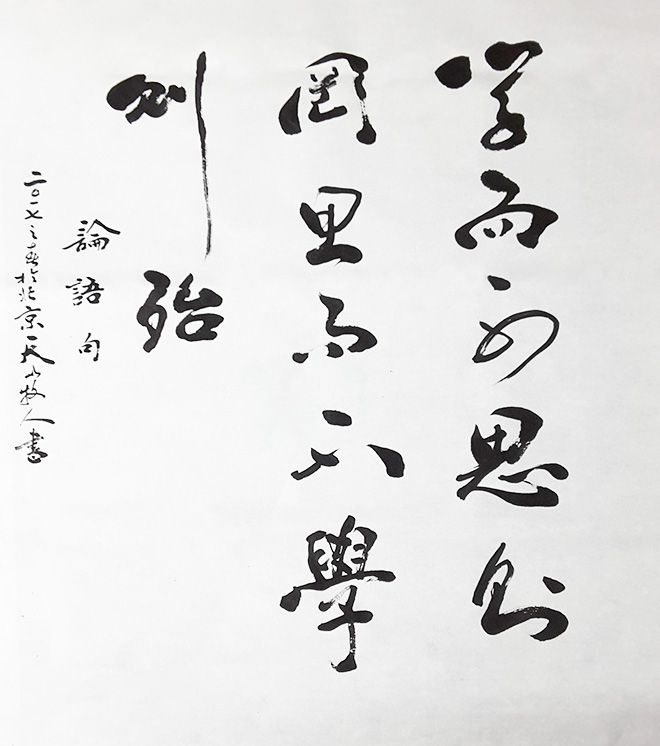 學而不思則
罔思而不學
則殆
論語句
二〇一七之春於北京天山牧人書